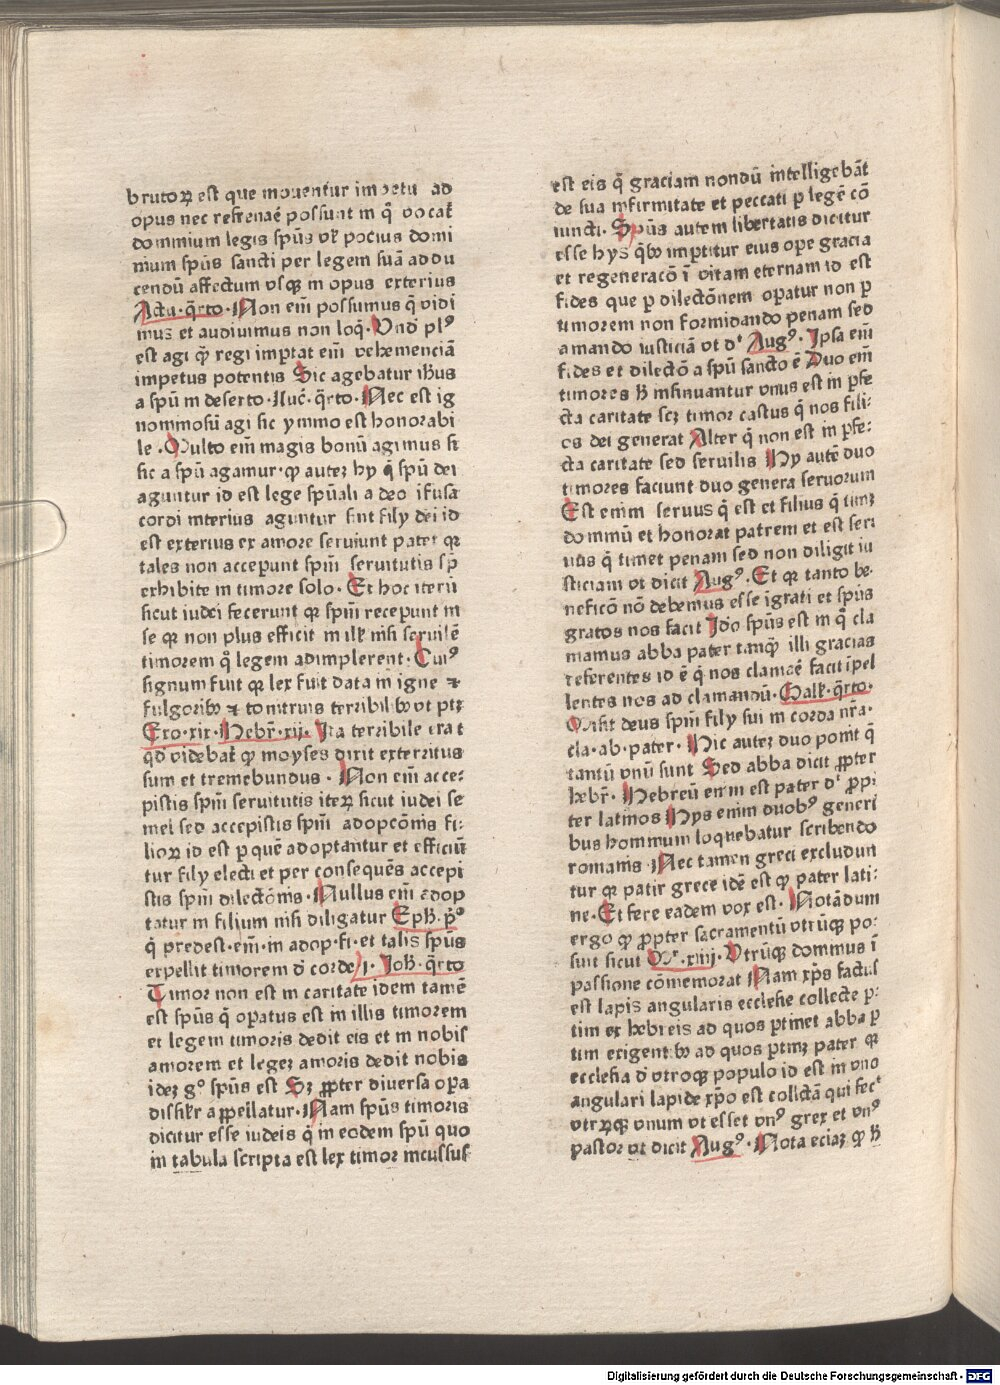 brutoꝝ est que mouentur impetu ad
opus nec refrenaē possunt in q̄ vocat̄
dominium legis spūs vl' pocius domi
nium spūs sancti per legem suā addu
cendū affectum vsqꝫ in opus exterius
Actu·q̄rto·Non em̄ possumus q̄ vidi
mus et audiuimus non loq̄·Vnd' plꝰ
est agi q̄ꝫ regi imp̱tat em̄ vehemenciā
impetus potentis Sic agebatur ih̄us
a spū in deserto·Luc̄·q̄rto·Nec est ig
nominosū agi sic ymmo est honorabi
le·Multo em̄ magis bonū agimus si
sic a spū agamur·ꝙ auteꝫ hy q̄ spū dei
aguntur id est lege spūali a deo īfusa
cordi interius aguntur sint fily dei id
est exterius ex amore seruiunt pater qꝛ
tales non acceperunt spm̄ seruitutis sp̄
exhibite in timore solo·Et hoc iterū
sicut iudei fecerunt qꝛ spm̄ receperunt in
se qꝛ non plus efficit in ill' nisi seruilē
timorem q̄ legem adimplerent·Cuiꝰ
signum fuit qꝛ lex fuit data in igne ⁊
fulgoribꝫ ⁊ tonitruis terribilibꝫ vt ptꝫ
Exo·xix·Hebr̄·xij·Ita terribile erat
qd' videbat̄ ꝙ moyses dixit exterritus
sum et tremebundus·Non em̄ acce-
pistis spm̄ seruitutis iteꝝ sicut iudei se
mel sed accepistis spm̄ adopcōnis fi-
lioꝝ id est ꝑ quē adoptantur et efficiū
tur fily electi et per consequēs accepi
stis spm̄ dilectōnis·Nullus em̄ adop
tatur in filium nisi diligatur Eph̄·p̄ꝰ
q̄ predest·em̄·in adop·fi·et talis spūs
expellit timorem d' corde 1·Joh̄·q̄rto
Timor non est in caritate idem tamē
est spūs q̄ oꝑatus est in illis timorem
et legem timoris dedit eis et in nobis
amorem et legeꝫ amoris dedit nobis
ideꝫ gͦ spūs est Sꝫ ꝓpter diuersa oꝑa
dissil'r appellatur·Nam spūs timoris
dicitur esse iudeis q̄ in eodem spū quo
in tabula scripta est lex timor incussus
est eis q̄ graciam nondū intelligebāt
de sua infirmitate et peccati ꝑ legē cō
iuncti·Spūs autem libertatis dicitur
esse hys q̄bꝫ imꝑtitur eius ope gracia
et regeneracō ī vitam eternam id est
fides que ꝑ dilectōnem oꝑatur non ꝑ
timorem non formidando penam sed
amando iusticiā vt d't Augꝰ·Ipsa em̄
fides et dilectō a spū sancto ē Duo em̄
timores h̄ insinuantur vnus est in ꝑfe
cta caritate scꝫ timor castus q̄ nos fili-
os dei generat Alter q̄ non est in ꝑfe-
cta caritate sed seruilis Hy autē duo
timores faciunt duo genera seruorum
Est enim seruus q̄ est et filius q̄ timꝫ
dominū et honorat patrem et est seru
uus q̄ timet penam sed non diligit iu
sticiam vt dicit Augꝰ·Et qꝛ tanto be-
neficō nō debemus esse īgrati et spūs
gratos nos facit Ido spūs est in q̄ cla
mamus abba pater tamq̄ꝫ illi gracias
referentes id ē q̄ nos clamaē facit īpel
lentes nos ad clamandū·Gall'·q̄rto·
Misit deus spm̄ fily sui in corda nr̄a·
cla·ab·pater·Hic auteꝫ duo ponit q̄
tantū vnū sunt Sed abba dicit ꝓpter
hebr̄·Hebreū enim est pater d't ꝓpi
ter latinos Hys enim duobꝰ generi
bus hominum loquebatur scribendo
romanis·Nec tamen greci excludun
tur qꝛ patir grece idē est ꝙ pater lati-
ne·Et fere eadem vox est·Notādum
ergo ꝙ ꝓpter sacramentū vtrūqꝫ po-
sint sicut Mr̄·xiiij·Vtrūqꝫ dominus ī
passione cōmemorat Nam xp̄s factus
est lapis angularis ecclesie collecte ꝑ-
tim ex hebreis ad quos ꝑtinet abba ꝑ
tim ex gentibꝫ ad quos ꝑtinꝫ pater qꝛ
ecclesia d' vtroqꝫ populo id est in vno
angulari lapide xp̄o est collectā qui fec̄t
vtrūqꝫ vnum vt esset vnꝰ grex et vnꝰ
pastor vt dicit Augꝰ·Nota eciaꝫ ꝙ h̄
Digitalisierung gefördert durch die Deutsche Forschungsgemeinschaft - DFG